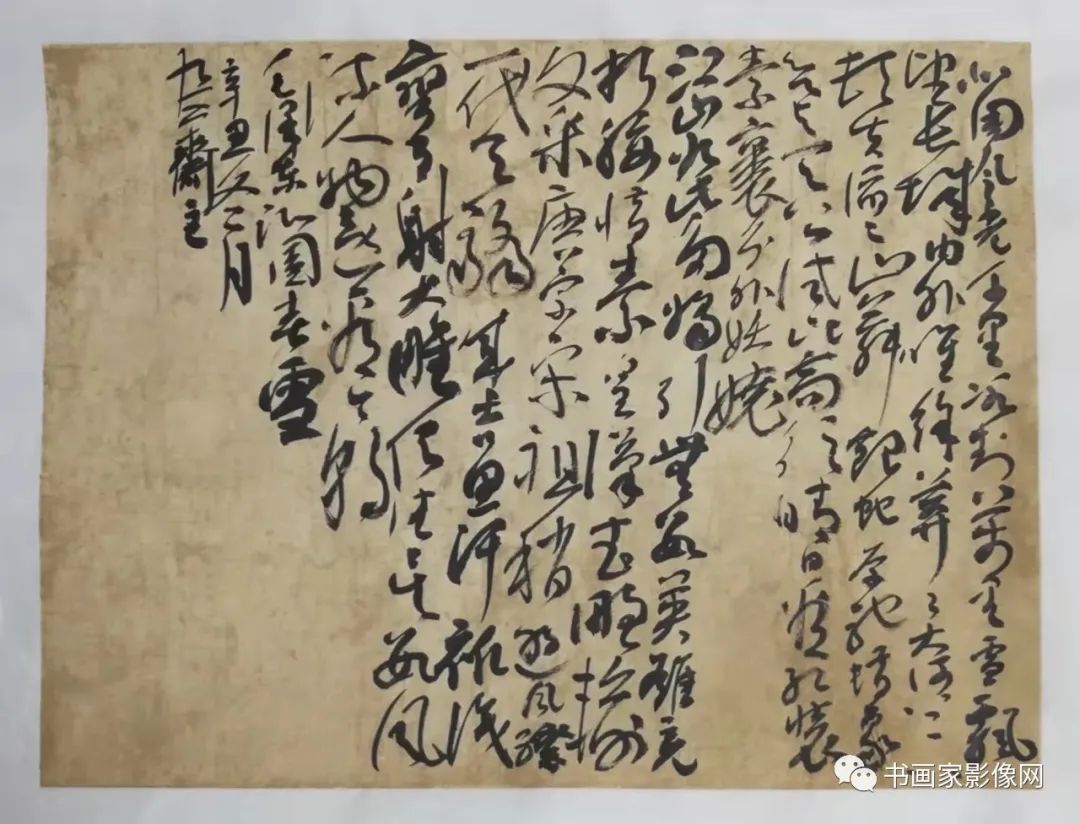 北国风光千里冰封万里雪飘
望长城内外唯馀莽々大河上下
顿失滔々山舞银蛇原驰蜡象
欲与天公试比高须晴日看红装
素裹分外妖娆
江山如此多娇引無数英雄竞
折腰惜秦皇汉武略输
文采唐宗宋祖稍逊风骚
一代天骄成吉思汗祇识
弯弓射大雕俱往矣数风
流人物还看今朝
毛泽东沁園春雪
辛丑二月
斋主
书画家影像网